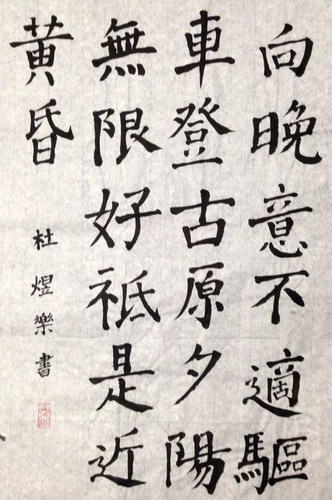 向晚意不適驅
車登古原夕陽
無限好祗是近
黃昏
杜煜樂書